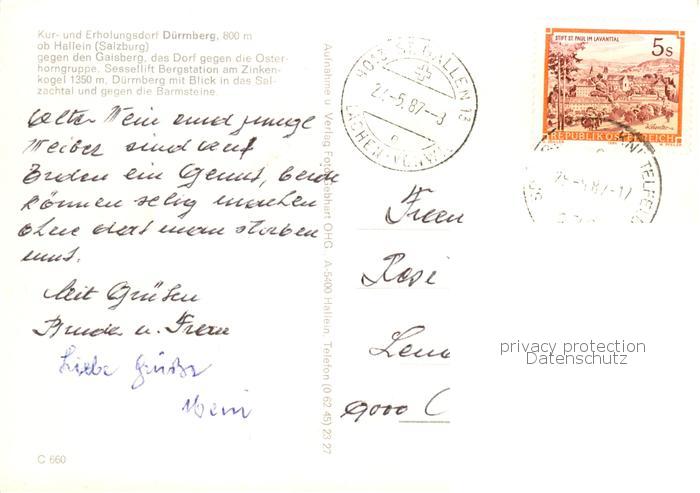 Kur- und Erholungsdorf Dürrnberg, 800 m
ob Hallein (Salzburg)
gegen den Gaisberg, das Dorf gegen die Oster-
horngruppe. Sessellift Bergstation am Zinken-
kogel 1350 m, Dürrnberg mit Blick in das Sal-
zachtal und gegen die Barmsteine.
Alter Wein und junge
Weiber sind auf
Erden ein Genuß, beide
können selig machen
ohne das man sterben
muß.
Mit Grüßen
Bruder u. Frau
Liebe Grüße
C 660
Aufnahme u. Verlag Foto Gebhart OHG A-5400 Hallein, Telefon (0 62 45) 23 27
9013 ST. GALLEN 13
27.-5.87.-8
LACHEN-VONWIL
STIFT ST. PAUL IM LAVANTTAL
5 S
REPUBLIK ÖSTERREICH
Frau
Rosi
9000
privacy protection
Datenschutz